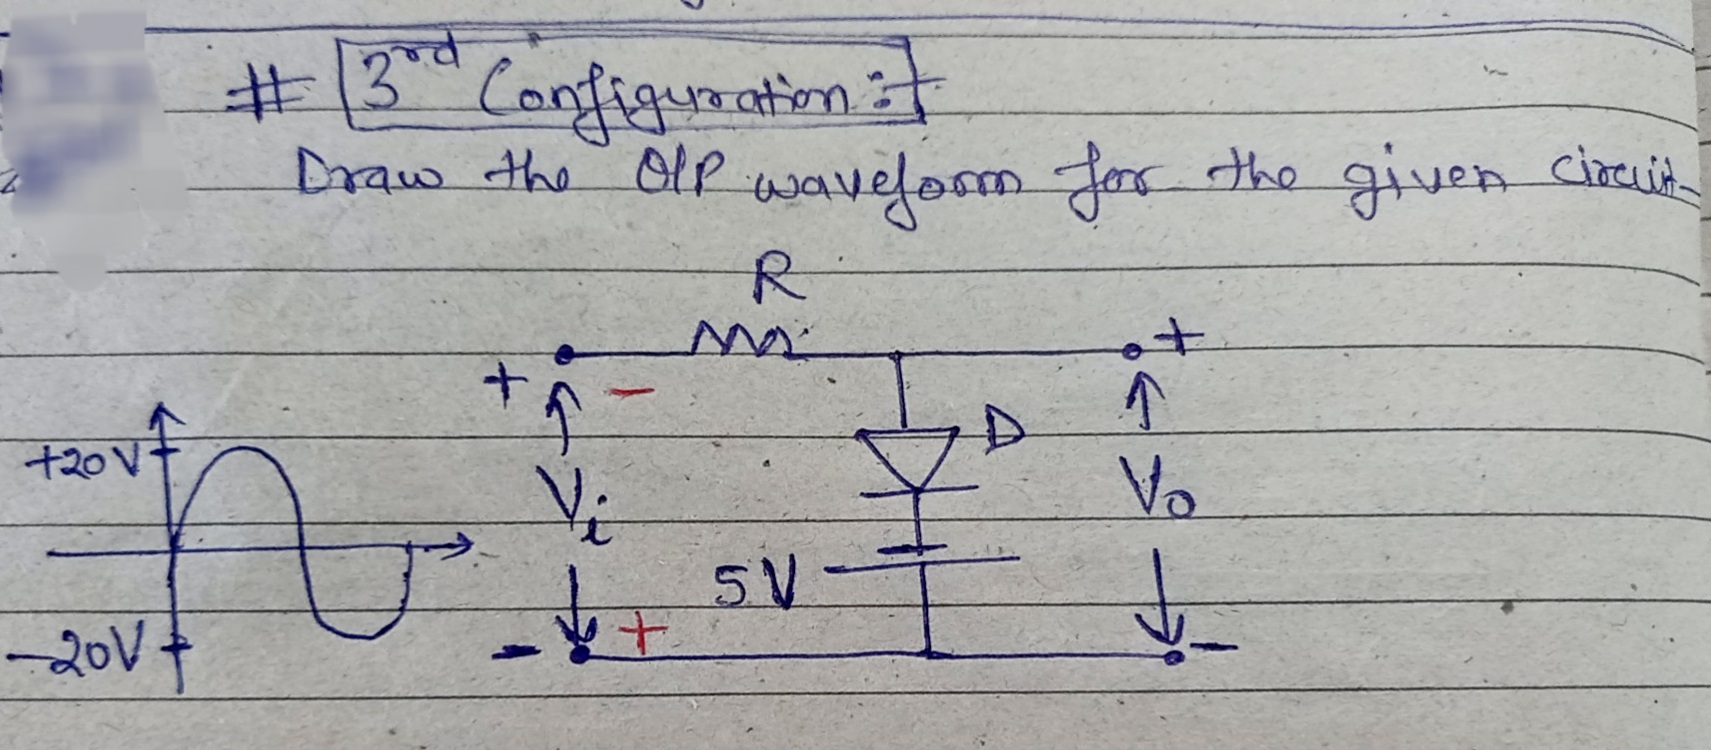 # 3rd Configuration :-
Draw the O/P waveform for the given circuit
R
+ - +
D
+20V
Vi Vo
5V
-20V
- + -